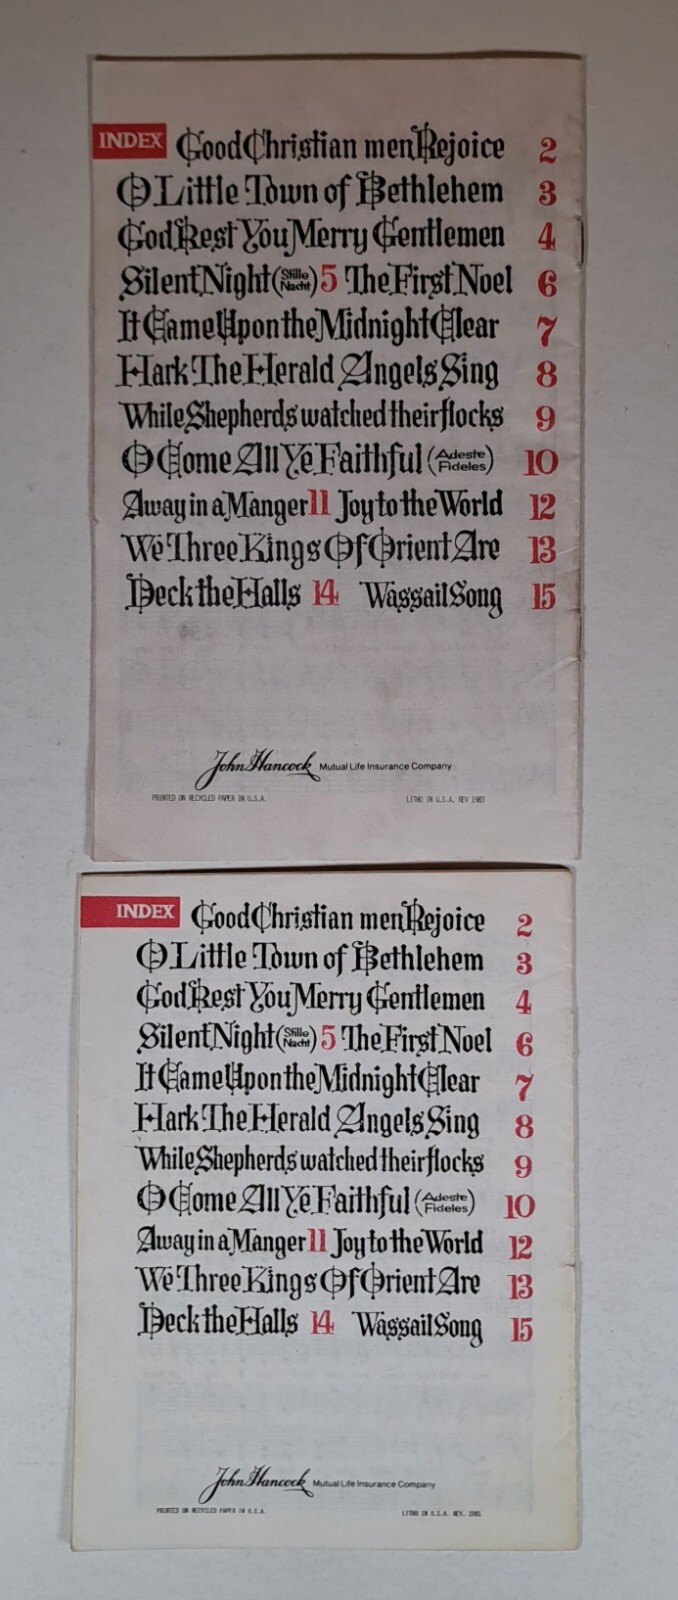 INDEX Good Christian men Rejoice 2
O Little Town of Bethlehem 3
God Rest You Merry Gentlemen 4
Silent Night (Stille Nacht) 5 The First Noel 6
It Came Upon the Midnight Clear 7
Hark The Herald Angels Sing 8
While Shepherds watched their flocks 9
O Come All Ye Faithful (Adeste Fideles) 10
Away in a Manger 11 Joy to the World 12
We Three Kings Of Orient Are 13
Deck the Halls 14 Wassail Song 15
John Hancock Mutual Life Insurance Company
PRINTED ON RECYCLED PAPER IN U.S.A. LITHO IN U.S.A. REV 1983
INDEX Good Christian men Rejoice 2
O Little Town of Bethlehem 3
God Rest You Merry Gentlemen 4
Silent Night (Stille Nacht) 5 The First Noel 6
It Came Upon the Midnight Clear 7
Hark The Herald Angels Sing 8
While Shepherds watched their flocks 9
O Come All Ye Faithful (Adeste Fideles) 10
Away in a Manger 11 Joy to the World 12
We Three Kings Of Orient Are 13
Deck the Halls 14 Wassail Song 15
John Hancock Mutual Life Insurance Company
PRINTED ON RECYCLED PAPER IN U.S.A. LITHO IN U.S.A. REV.